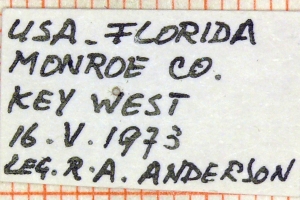 USA-FLORIDA
MONROE CO.
KEY WEST
16.V.1973
LEG.R.A. ANDERSON